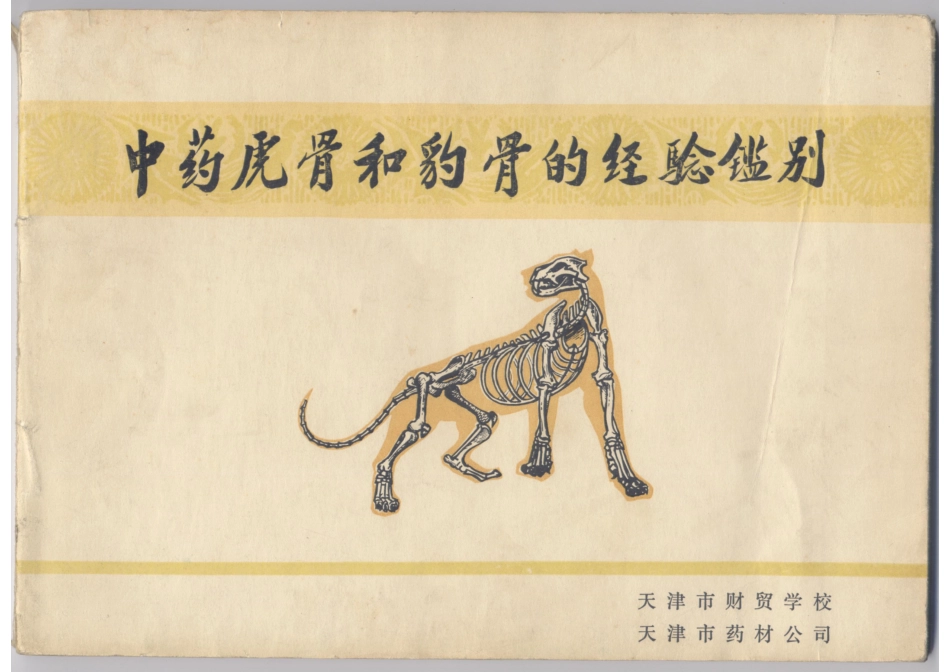 中药虎骨和豹骨的经验鉴别
天津市财贸学校
天津市药材公司